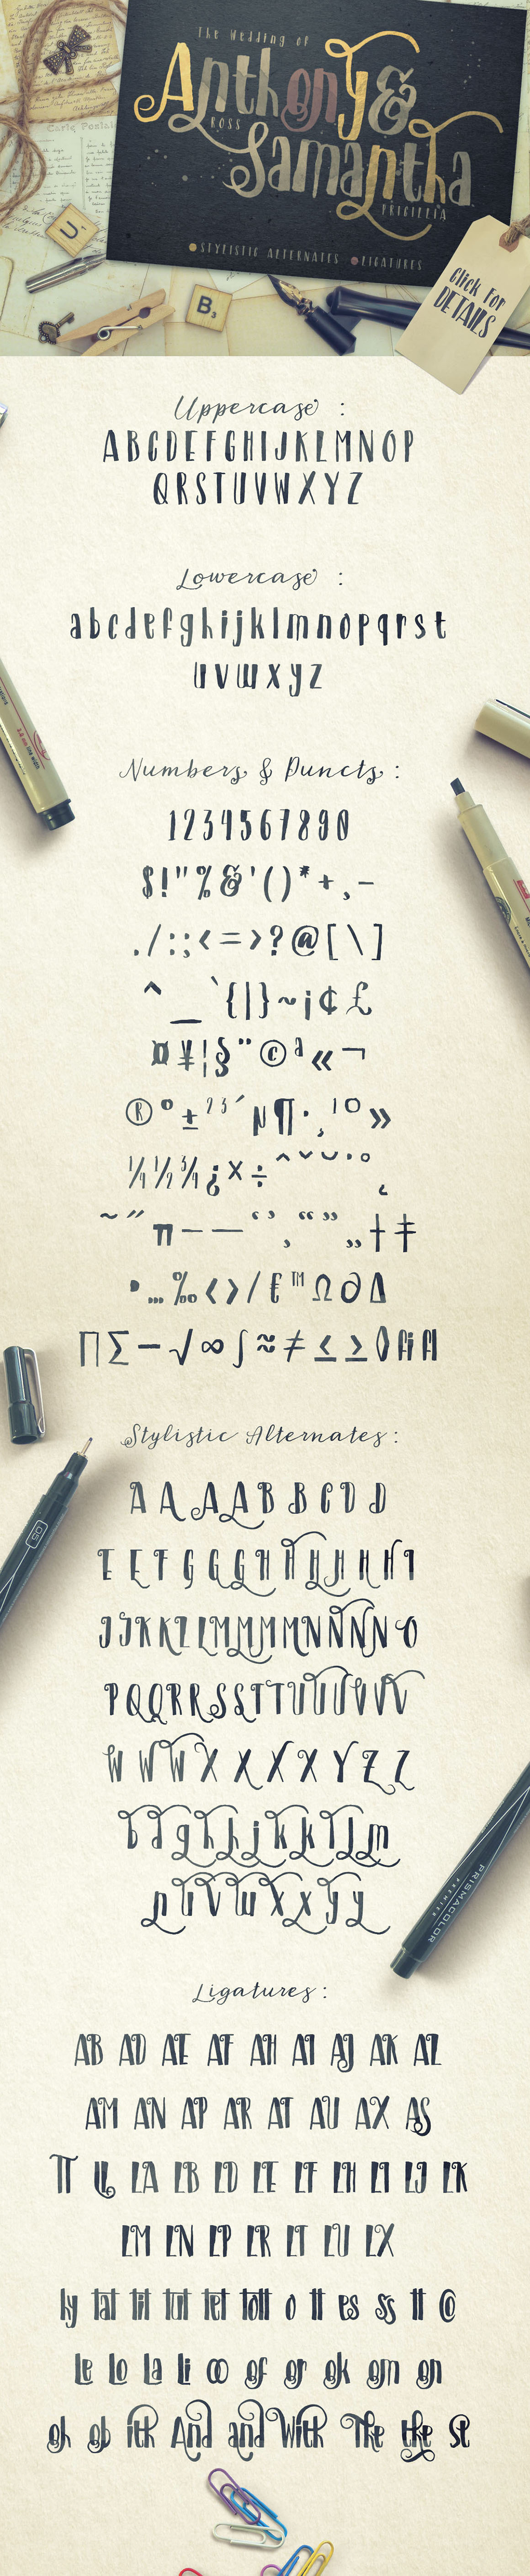 The Wedding of
Anthony &
ROSS
Samantha
PRICILLIA
STYLISTIC ALTERNATES LIGATURES
Click For
DETAILS
U
B3
Uppercase :
A B C D E F G H I J K L M N O P
Q R S T U V W X Y Z
Lowercase :
a b c d e f g h i j k l m n o p q r s t
u v w x y z
Numbers & Puncts :
1 2 3 4 5 6 7 8 9 0
$ ! " % & ' ( ) * + , -
. / : ; < = > ? @ [ \ ]
^ _ ` { | } ~ ¡ ¢ £
¤ ¥ ¦ § ¨ © ª « ¬
® ° ± ² ³ ´ µ ¶ · ¸ ¹ º »
¼ ½ ¾ ¿ × ÷ ˆ ˇ ˘ ˙ ˚ ˛
˜ ˝ π – — ‘ ’ ‚ “ ” „ † ‡
• … ‰ ‹ › / € ™ Ω ∂ ∆
∏ ∑ − √ ∞ ∫ ≈ ≠ ≤ ≥ ◊ fi fl
Stylistic Alternates :
A A A A B B C D D
E E F G G G H H H H H H I
J J K K L L M M M M N N N N O
P Q Q R R S S T T U U U V V V
W W W X X X X Y Z Z
b d g h h j k k l l m
n u v w x x y y
05
PRISMACOLOR
PREMIER
Ligatures :
AB AD AE AF AH AI AJ AK AL
AM AN AP AR AT AU AX AS
TT LL LA LB LD LE LF LH LI LJ LK
LM LN LP LR LT LU LX
Le Lo La Li oo of or ok om on
oh ob ith And and With The the st